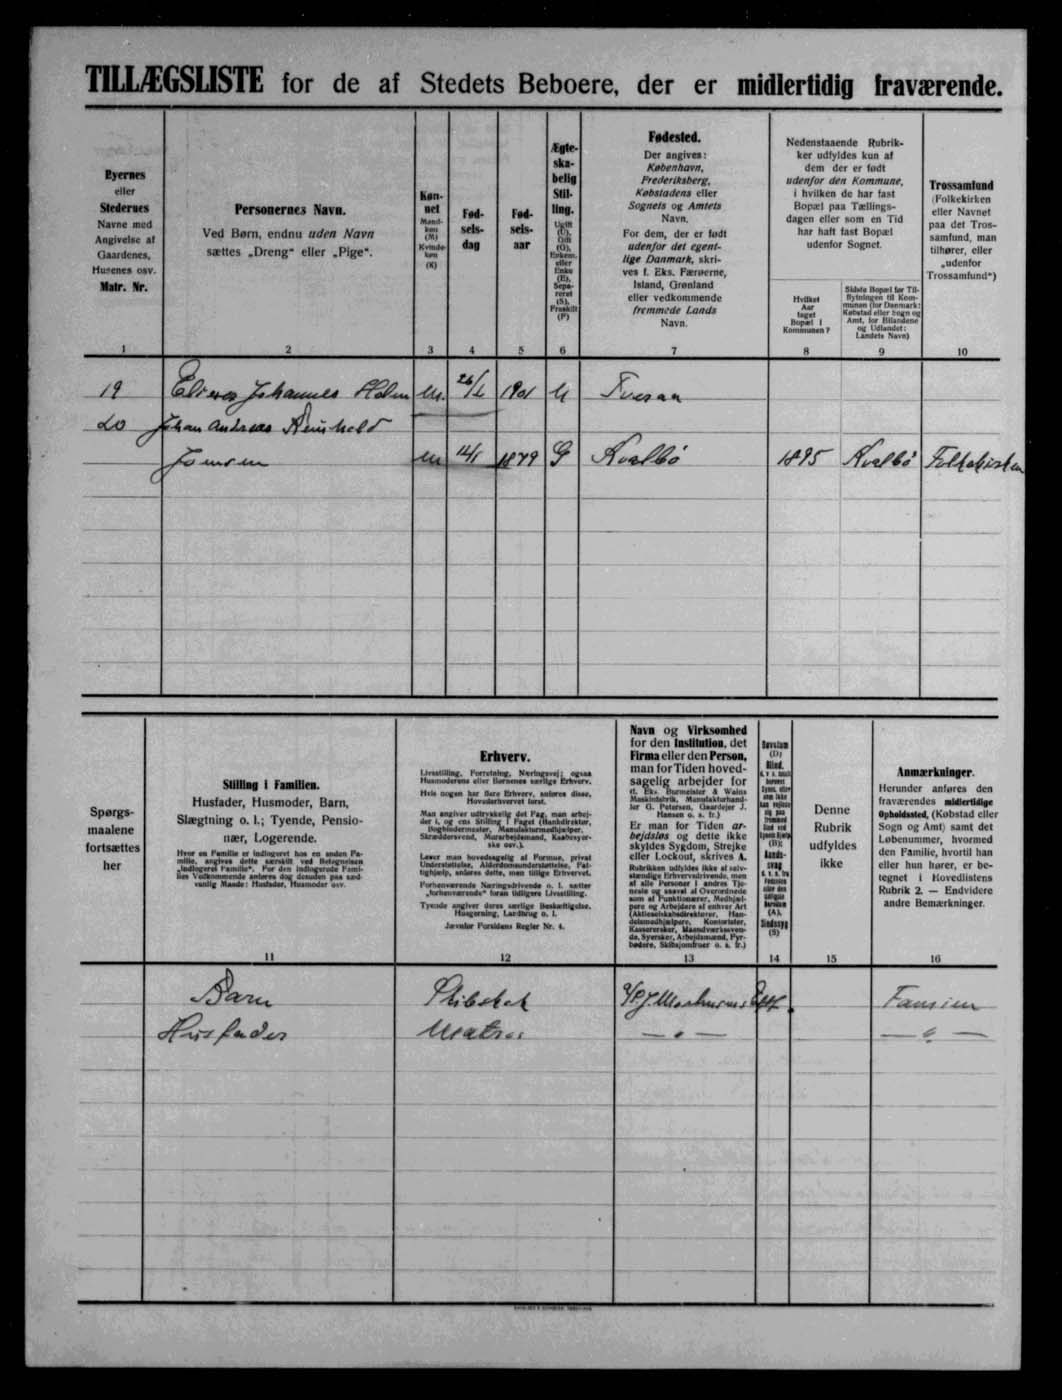 TILLÆGSLISTE for de af Stedets Beboere, der er midlertidig fraværende.
Byernes
eller
Stedernes
Navne med
Angivelse af
Gaardenes,
Husenes osv.
Matr. Nr.
Personernes Navn.
Ved Børn, endnu uden Navn
sættes „Dreng“ eller „Pige“.
Køn-
net
Mand-
køn
(M)
Kvinde-
køn
(K)
Fød-
sels-
dag
Fød-
sels-
aar
Ægte-
ska-
belig
Stil-
ling.
Ugift
(U),
Gift
(G),
Enkem.
eller
Enke
(E),
Sepa-
reret
(S),
Fraskilt
(F)
Fødested.
Der angives:
København,
Frederiksberg,
Købstadens eller
Sognets og Amtets
Navn.
For dem, der er født
udenfor det egent-
lige Danmark, skri-
ves f. Eks. Færøerne,
Island, Grønland
eller vedkommende
fremmede Lands
Navn.
Nedenstaaende Rubrik-
ker udfyldes kun af
dem der er født
udenfor den Kommune,
i hvilken de har fast
Bopæl paa Tællings-
dagen eller som en Tid
har haft fast Bopæl
udenfor Sognet.
Hvilket
Aar
taget
Bopæl i
Kommunen?
Sidste Bopæl før Til-
flytningen til Kom-
munen (for Danmark:
Købstad eller Sogn og
Amt, for Bilandene
og Udlandet:
Landets Navn)
Trossamfund
(Folkekirken
eller Navnet
paa det Tros-
samfund, man
tilhører, eller
„udenfor
Trossamfund“)
1 2 3 4 5 6 7 8 9 10
19 Johannes Holm M. 1901 U Tveraa
20 Johan Andreas Reinhold
Jensen M 12/1 1879 G Kvalbø 1895 Kvalbø Folkekirken
Spørgs-
maalene
fortsættes
her
Stilling i Familien.
Husfader, Husmoder, Barn,
Slægtning o. l.; Tyende, Pensio-
nær, Logerende.
Hvor en Familie er indlogeret hos en anden Fa-
milie, angives dette særskilt ved Betegnelsen
„indlogeret Familie“. For den indlogerede Fami-
lies Vedkommende anføres dog desuden paa sæd-
vanlig Maade: Husfader, Husmoder osv.
Erhverv.
Livsstilling, Forretning, Næringsvej; ogsaa
Husmoderens eller Børnenes særlige Erhverv.
Hvis nogen har flere Erhverv, anføres disse,
Hovederhvervet først.
Man angiver udtrykkelig det Fag, man arbej-
der i, og ens Stilling i Faget (Bankdirektør,
Bogbindermester, Manufakturmedhjælper,
Skræddersvend, Murarbejdsmand, Kaabesyer-
ske osv.).
Lever man hovedsagelig af Formue, privat
Understøttelse, Alderdomsunderstøttelse, Fat-
tighjælp, anføres dette, men tillige Erhvervet.
Forhenværende Næringsdrivende o. l. sætter
„forhenværende“ foran tidligere Livsstilling.
Tyende angiver deres særlige Beskæftigelse,
Husgerning, Landbrug o. l.
Jævnfør Forsidens Regler Nr. 4.
Navn og Virksomhed
for den Institution, det
Firma eller den Person,
man for Tiden hoved-
sagelig arbejder for
(f. Eks. Burmeister & Wains
Maskinfabrik, Manufakturhand-
ler G. Petersen, Gaardejer J.
Hansen o. s. fr.)
Er man for Tiden ar-
bejdsløs og dette ikke
skyldes Sygdom, Strejke
eller Lockout, skrives A.
Rubrikken udfyldes ikke af selv-
stændige Erhvervsdrivende, men
af alle Personer i andres Tje-
neste og saavel af Overordnede
som af Funktionærer, Medhjæl-
pere og Arbejdere af enhver Art
(Aktieselskabsdirektører, Han-
delsmedhjælpere, Kontorister,
Kasserersker, Haandværkssven-
de, Syersker, Arbejdsmænd, Fyr-
bødere, Skibsjomfruer o. s. fr.)
Døvstum
(D)
Blind,
(B);
Aands-
svag
(A),
Sindssyg
(S)
Denne
Rubrik
udfyldes
ikke
Anmærkninger.
Herunder anføres den
fraværendes midlertidige
Opholdssted, (Købstad eller
Sogn og Amt) samt det
Løbenummer, hvormed
den Familie, hvortil han
eller hun hører, er be-
tegnet i Hovedlistens
Rubrik 2. — Endvidere
andre Bemærkninger.
11 12 13 14 15 16
Barn
Husfader Matros — „ — — „ —